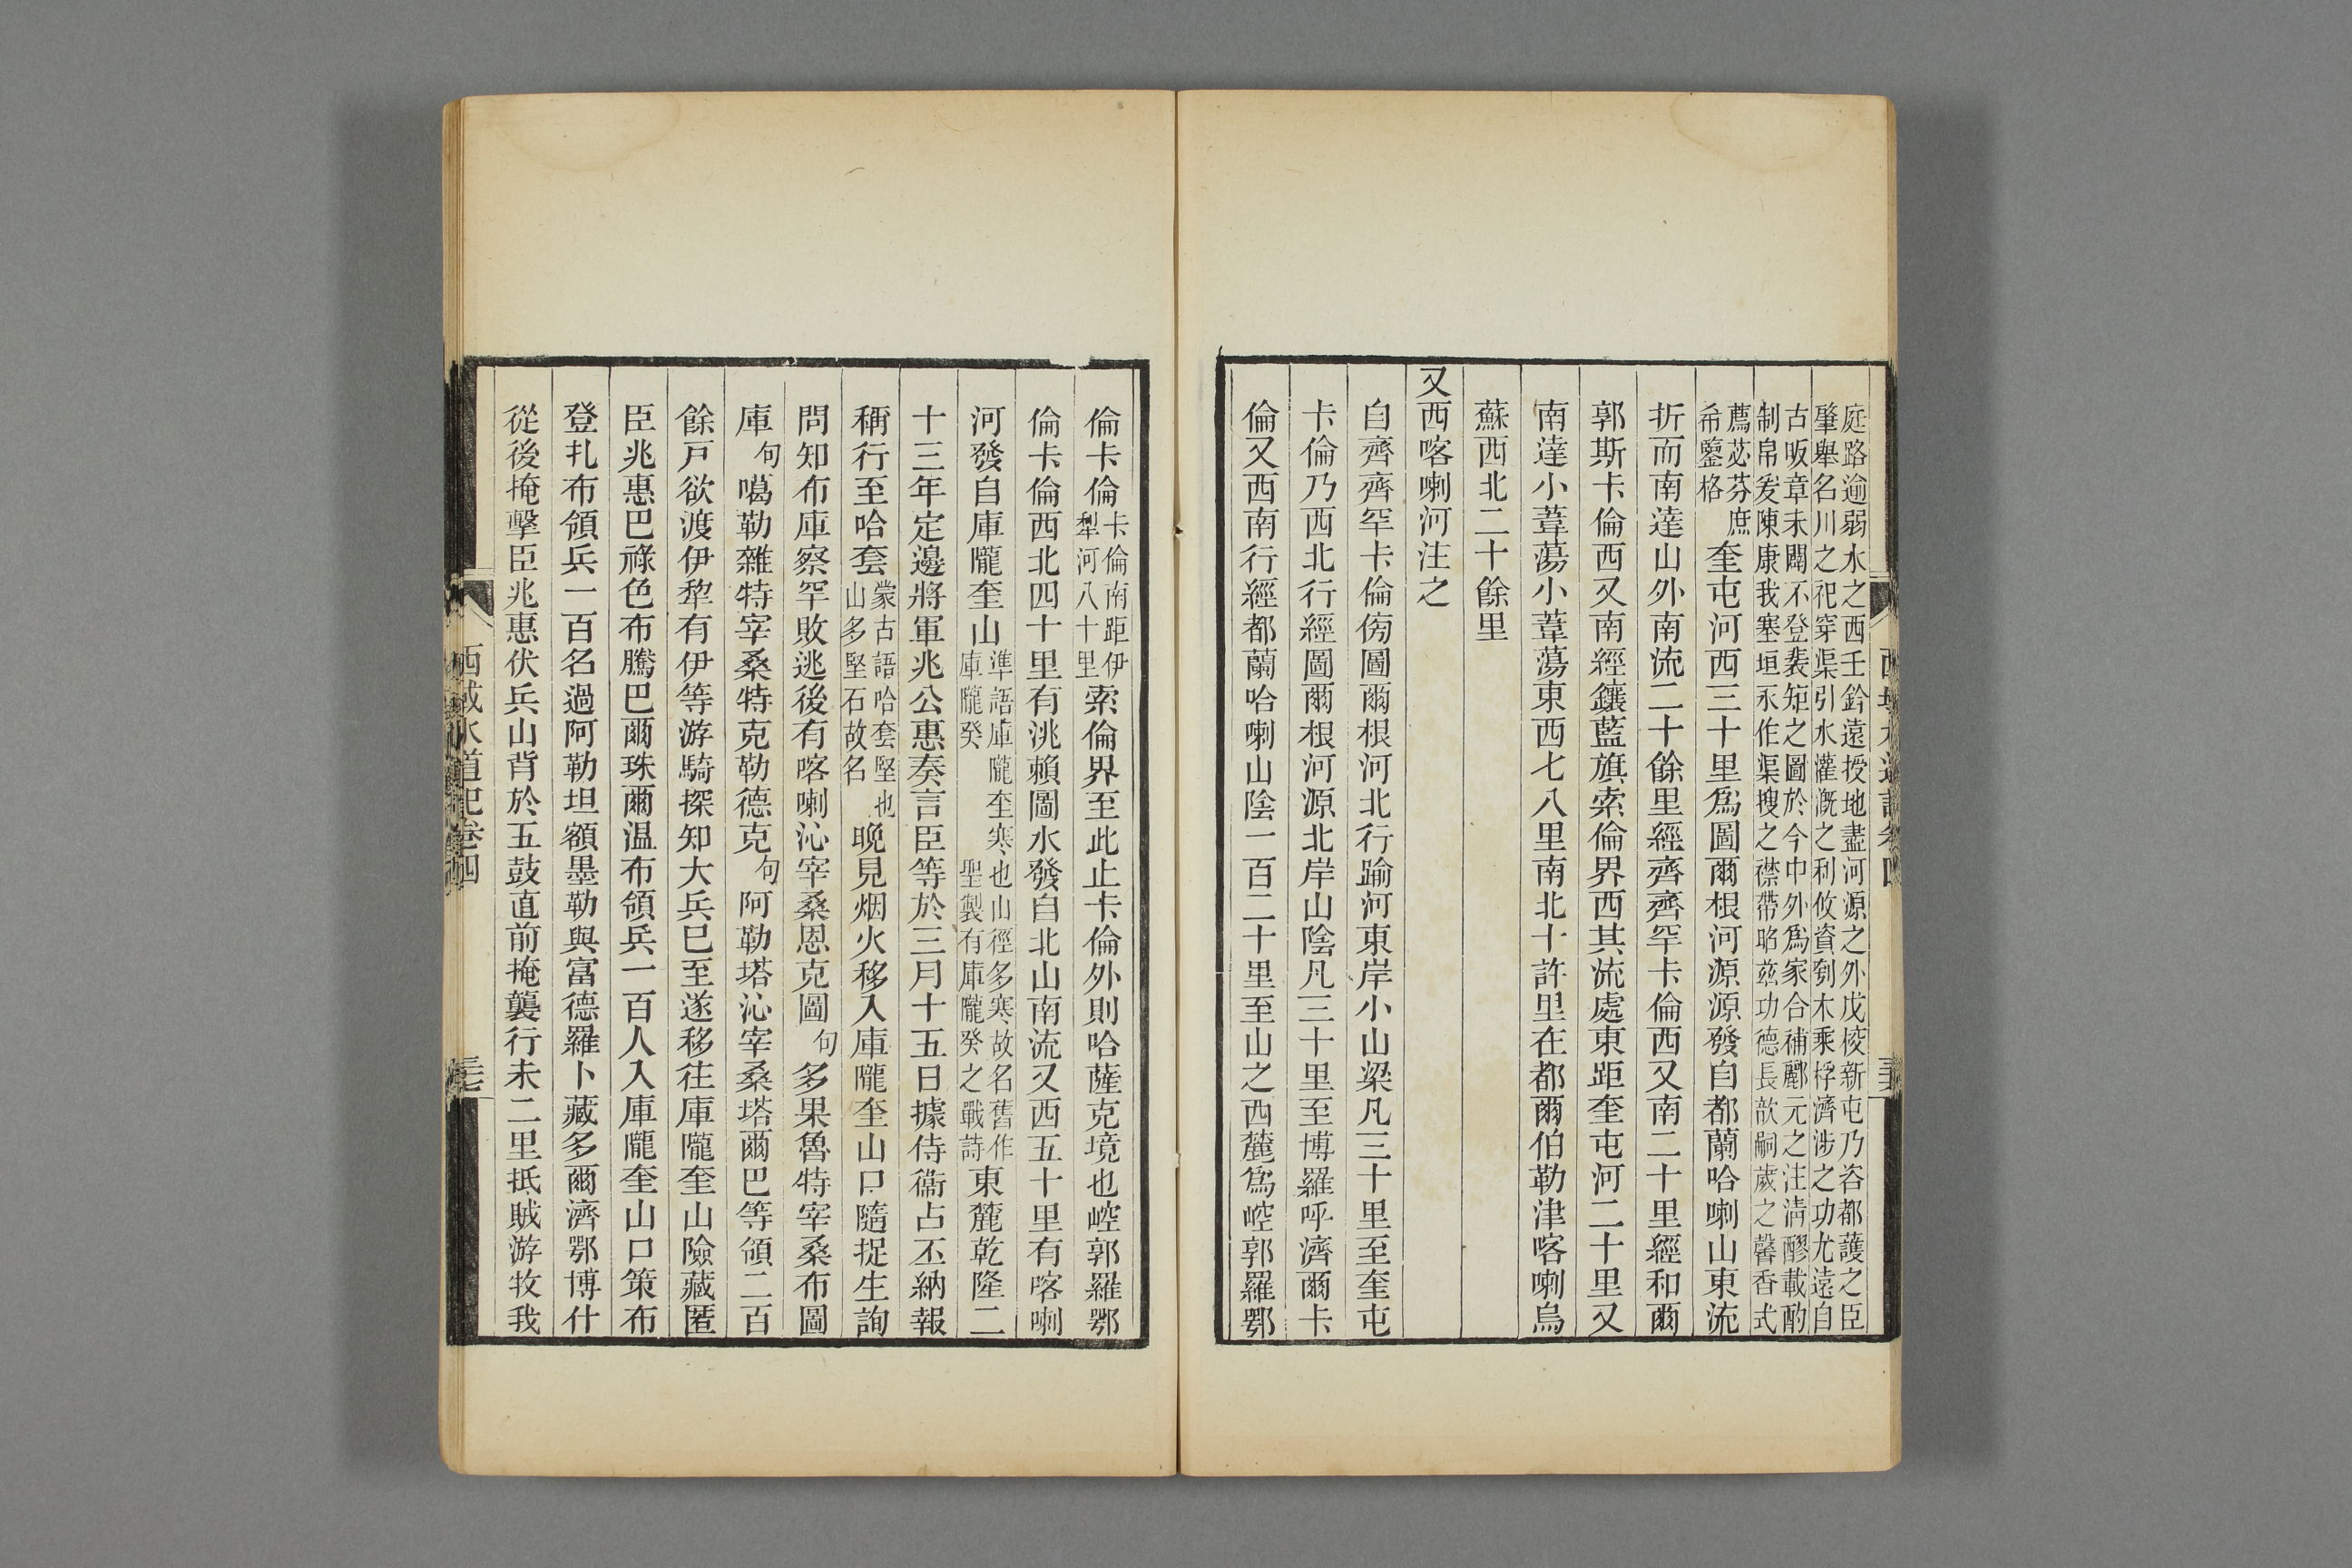 庭路逾弱水之西壬鈐遠授地盡河源之外戊校新屯乃咨都護之臣
肇舉名川之祀穿渠引水灌漑之利攸資刳木乘桴濟涉之功尤遠自
古昄章未闢不登裴矩之圖於今中外爲家合補酈元之注淸醪載酌
制帛爰陳康我塞垣永作渠搜之襟帶昭兹功德長歆嗣歲之馨香式
薦苾芬庶
希鑒格
奎屯河西三十里爲圖爾根河源源發自都蘭哈喇山東流
折而南達山外南流二十餘里經齊齊罕卡倫西又南二十里經和爾
郭斯卡倫西又南經鑲藍旗索倫界西其流處東距奎屯河二十里又
南達小葦蕩小葦蕩東西七八里南北十許里在都爾伯勒津喀喇烏
蘇西北二十餘里
又西喀喇河注之
自齊齊罕卡倫傍圖爾根河北行踰河東岸小山梁凡三十里至奎屯
卡倫乃西北行經圖爾根河源北岸山陰凡三十里至博羅呼濟爾卡
倫又西南行經都蘭哈喇山陰一百二十里至山之西麓爲崆郭羅鄂
倫卡倫
卡倫南距伊
犁河八十里
索倫界至此止卡倫外則哈薩克境也崆郭羅鄂
倫卡倫西北四十里有洮賴圖水發自北山南流又西五十里有喀喇
河發自庫隴奎山
準語庫隴奎寒也山徑多寒故名舊作
庫隴癸 聖製有庫隴癸之戰詩
東麓乾隆二
十三年定邊將軍兆公惠奏言臣等於三月十五日據侍衞占丕納報
稱行至哈套
蒙古語哈套堅也
山多堅石故名
晚見烟火移入庫隴奎山口隨捉生詢
問知布庫察罕敗逃後有喀喇沁宰桑恩克圖句多果魯特宰桑布圖
庫句噶勒雜特宰桑特克勒德克句阿勒塔沁宰桑塔爾巴等領二百
餘戸欲渡伊犂有伊等游騎探知大兵已至遂移往庫隴奎山險藏匿
臣兆惠巴祿色布騰巴爾珠爾温布領兵一百人入庫隴奎山口策布
登扎布領兵一百名過阿勒坦額墨勒與富德羅卜藏多爾濟鄂博什
從後掩擊臣兆惠伏兵山背於五鼓直前掩襲行未二里抵賊游牧我
西域水道記卷四